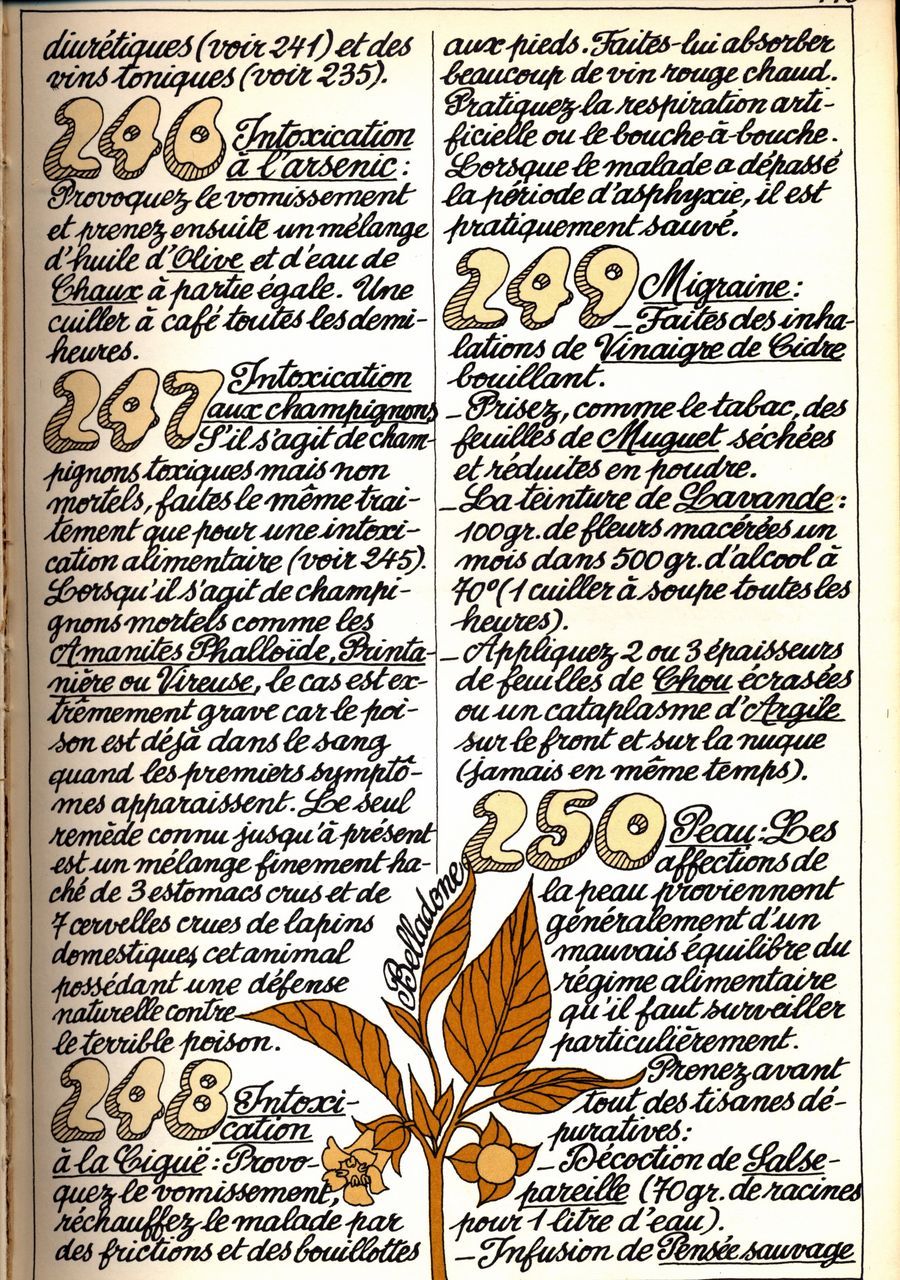 diurétiques (voir 241) et des
vins toniques (voir 235).
246 Intoxication
à l'arsenic :
Provoquez le vomissement
et prenez ensuite un mélange
d'huile d'Olive et d'eau de
Chaux à partie égale. Une
cuiller à café toutes les demi-
heures.
247 Intoxication
aux champignons
S'il s'agit de cham-
pignons toxiques mais non
mortels, faites le même trai-
tement que pour une intoxi-
cation alimentaire (voir 245).
Lorsqu'il s'agit de champi-
gnons mortels comme les
Amanites Phalloïde, Printa-
nière ou Vireuse, le cas est ex-
trêmement grave car le poi-
son est déjà dans le sang
quand les premiers symptô-
mes apparaissent. Le seul
remède connu jusqu'à présent
est un mélange finement ha-
ché de 3 estomacs crus et de
7 cervelles crues de lapins
domestiques, cet animal
possédant une défense
naturelle contre
le terrible poison.
248 Intoxi-
cation
à la Ciguë : Provo-
quez le vomissement,
réchauffez le malade par
des frictions et des bouillottes
aux pieds. Faites-lui absorber
beaucoup de vin rouge chaud.
Pratiquez la respiration arti-
ficielle ou le bouche-à-bouche.
Lorsque le malade a dépassé
la période d'asphyxie, il est
pratiquement sauvé.
249 Migraine :
_ Faites des inha-
lations de Vinaigre de Cidre
bouillant.
_ Prisez, comme le tabac, des
feuilles de Muguet séchées
et réduites en poudre.
_ La teinture de Lavande :
100 gr. de fleurs macérées un
mois dans 500 gr. d'alcool à
70° (1 cuiller à soupe toutes les
heures).
_ Appliquez 2 ou 3 épaisseurs
de feuilles de Chou écrasées
ou un cataplasme d'Argile
sur le front et sur la nuque
(jamais en même temps).
250 Peau : Les
affections de
la peau proviennent
généralement d'un
mauvais équilibre du
régime alimentaire
qu'il faut surveiller
particulièrement.
Prenez avant
tout des tisanes dé-
puratives :
_ Décoction de Salse-
pareille (70 gr. de racines
pour 1 litre d'eau).
_ Infusion de Pensée sauvage
Belladone